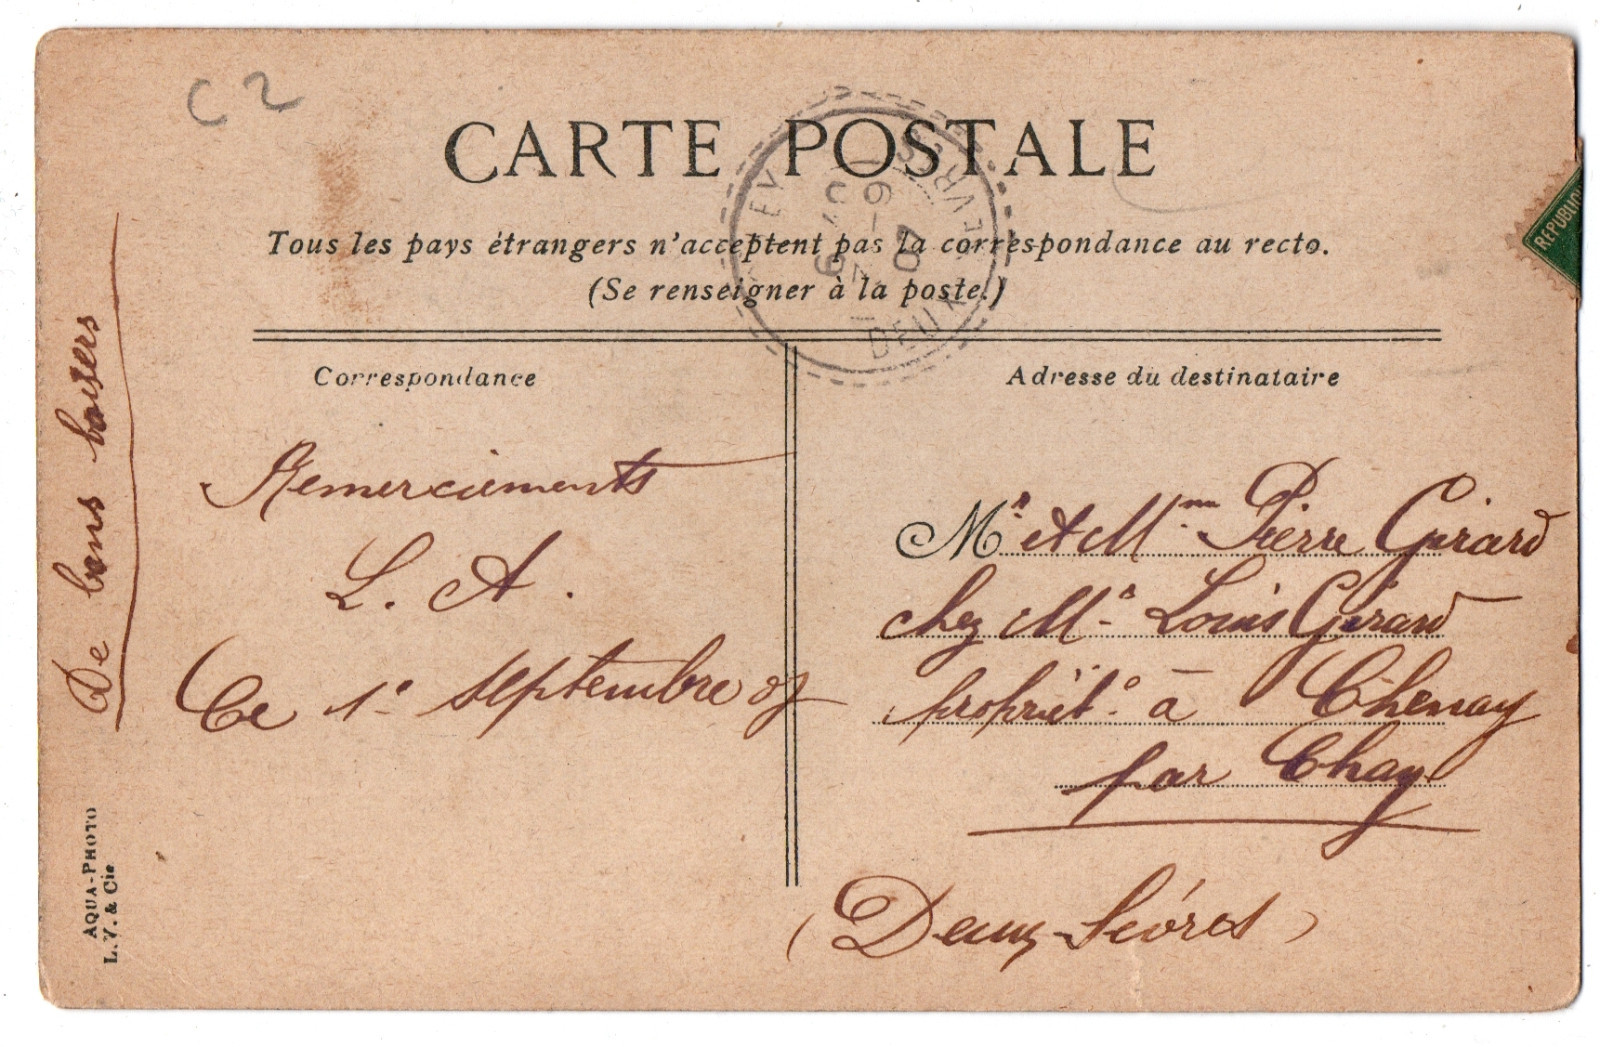 C 2
CARTE POSTALE
Tous les pays étrangers n'acceptent pas la correspondance au recto.
(Se renseigner à la poste.)
REPUBLIQ
DEUX SEVRES
07
Correspondance
Adresse du destinataire
De bons baisers
Remerciements
L. A.
Ce 1° septembre 07
Mr et Mme Pierre Girard
chez Mr Louis Girard
propriét° à Chenay
par Chay
(Deux-Sèvres)
AQUA-PHOTO
L. V. & Cie